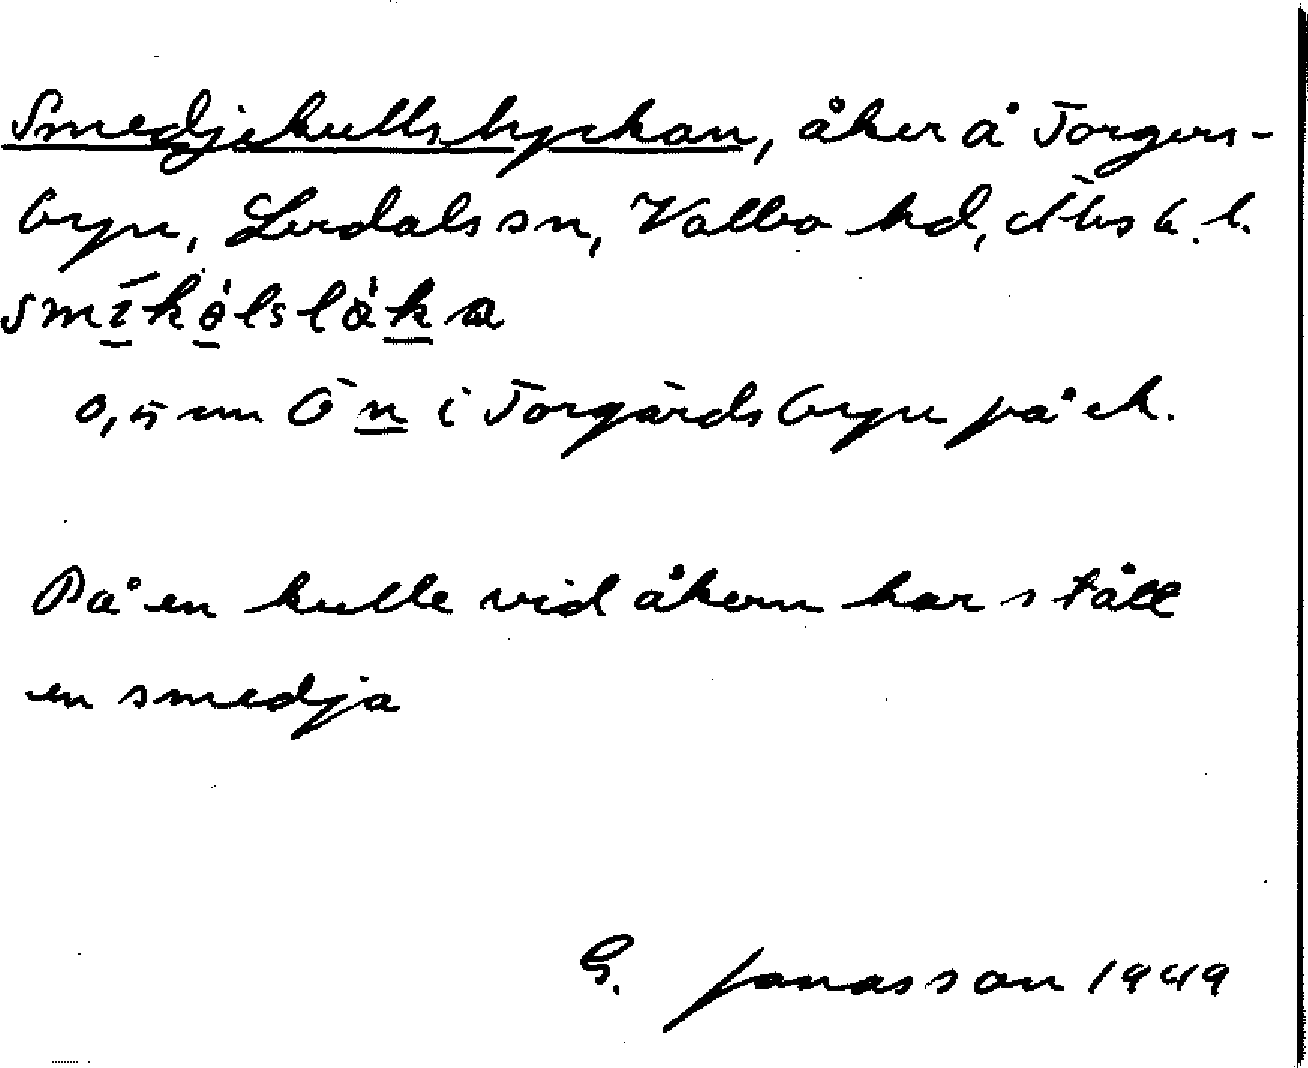 Smedjekullslyckan, åker å Torgers-
byn, Lerdals sn, Valbo hd, Älvsb. l.
smīkölslåka
0,5 km Ö n i Torgärdsbyn på ek.
På en kulle vid åkern har stått
en smedja
G. Jonasson 1949